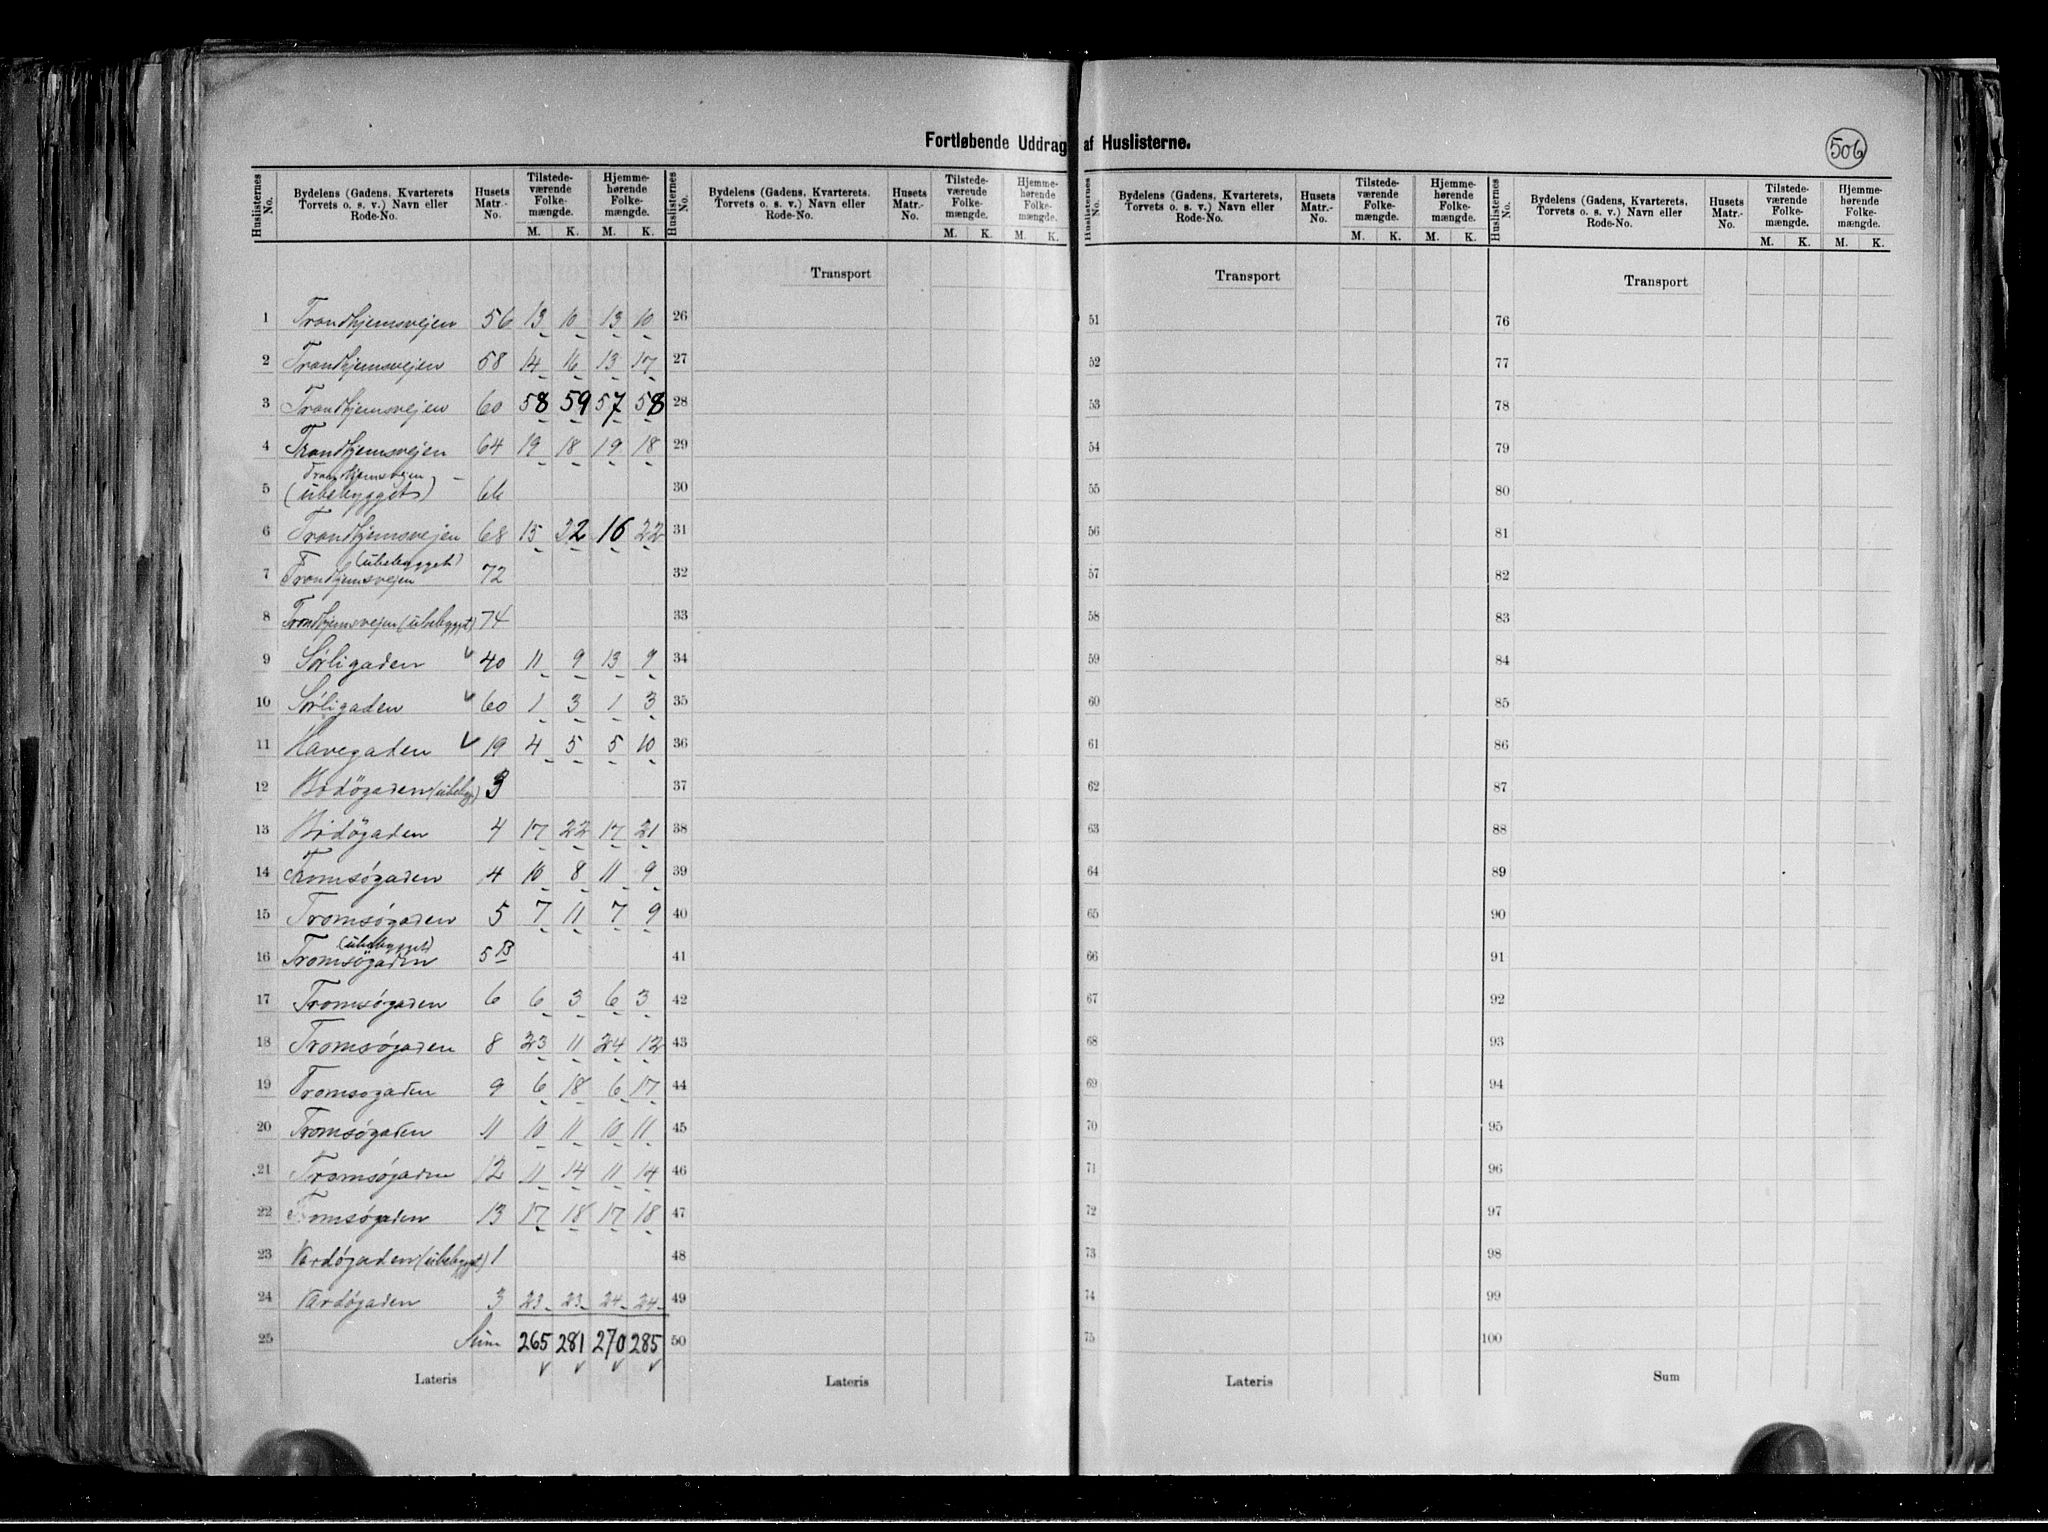 Fortløbende Uddrag af Huslisterne.
506
Huslisternes No. Bydelens (Gadens, Kvarterets Torvets o. s. v.) Navn eller Rode-No. Husets Matr.-No. Tilstedeværende Folkemængde. M. K. Hjemmehørende Folkemængde. M. K.
1 Trondhjemsvejen 56 13 10 13 10
2 Trondhjemsvejen 58 14 16 13 17
3 Trondhjemsvejen 60 58 59 57 58
4 Trondhjemsvejen 64 19 18 19 18
5 Trondhjemsvejen (ubebygget) 66
6 Trondhjemsvejen 68 15 22 16 22
7 Trondhjemsvejen (ubebygget) 72
8 Trondhjemsvejen (ubebygget) 74
9 Sørligaden 40 11 9 13 9
10 Sørligaden 60 1 3 1 3
11 Havegaden 19 4 5 5 10
12 Bodögaden (ubebyg) 3
13 Bodögaden 4 17 22 17 21
14 Tromsøgaden 4 10 8 11 9
15 Tromsøgaden 5 7 11 7 9
16 Tromsøgaden (ubebygget) 5 B
17 Tromsøgaden 6 6 3 6 3
18 Tromsøgaden 8 23 11 24 12
19 Tromsøgaden 9 6 18 6 17
20 Tromsøgaden 11 10 11 10 11
21 Tromsøgaden 12 11 14 11 14
22 Tromsøgaden 13 17 18 17 18
23 Vardøgaden (ubebygget) 1
24 Vardøgaden 3 23 23 24 24
25 Sum 265 281 270 285
Lateris
Huslisternes No. Bydelens (Gadens, Kvarterets, Torvets o. s. v.) Navn eller Rode-No. Husets Matr.-No. Tilstedeværende Folkemængde. M. K. Hjemmehørende Folkemængde. M. K.
Transport
26
27
28
29
30
31
32
33
34
35
36
37
38
39
40
41
42
43
44
45
46
47
48
49
50
Lateris
Huslisternes No. Bydelens (Gadens, Kvarterets, Torvets o. s. v.) Navn eller Rode-No. Husets Matr.-No. Tilstedeværende Folkemængde. M. K. Hjemmehørende Folkemængde. M. K.
Transport
51
52
53
54
55
56
57
58
59
60
61
62
63
64
65
66
67
68
69
70
71
72
73
74
75
Lateris
Huslisternes No. Bydelens (Gadens, Kvarterets, Torvets o. s. v.) Navn eller Rode-No. Husets Matr.-No. Tilstedeværende Folkemængde. M. K. Hjemmehørende Folkemængde. M. K.
Transport
76
77
78
79
80
81
82
83
84
85
86
87
88
89
90
91
92
93
94
95
96
97
98
99
100
Sum